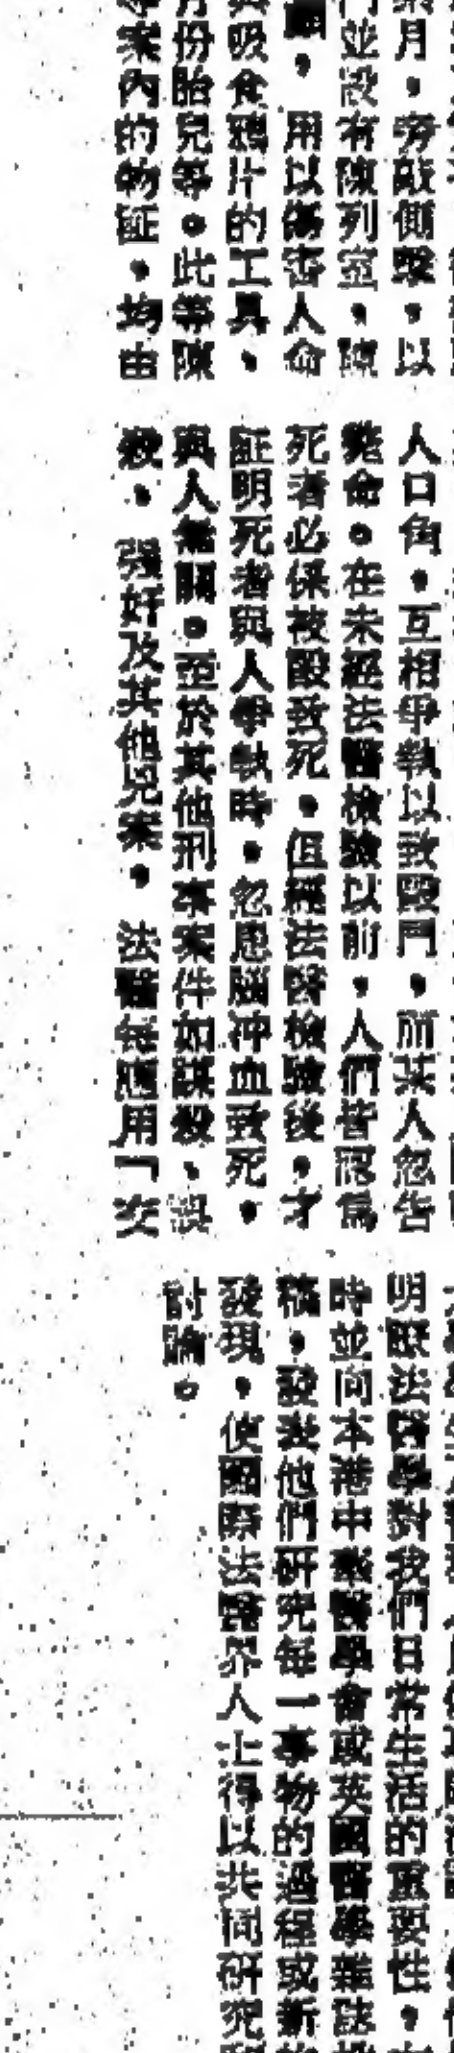 案月，旁敲側擊，以
門並設有陳列室，陳
用以傷害人命
吸食鴉片的工具、
月份胎兒等。此等陳
案內的物証，均由
人口角，互相爭執以致毆鬥，而某人忽告
斃命。在未經法醫檢驗以前，人們皆認爲
死者必係被毆致死，但經法醫檢驗後，才
証明死者與人爭執時，忽患腦冲血致死，
與人無關。至於其他刑事案件如謀殺、誤
殺、强奸及其他兇案，法醫每應用「交
明瞭法醫學對我們日常生活的重要性，
時並向本港中華醫學會或英國醫學雜誌投
稿，發表他們研究每一事物的過程或新的
發現，使國際法醫界人士得以共同研究與
討論。